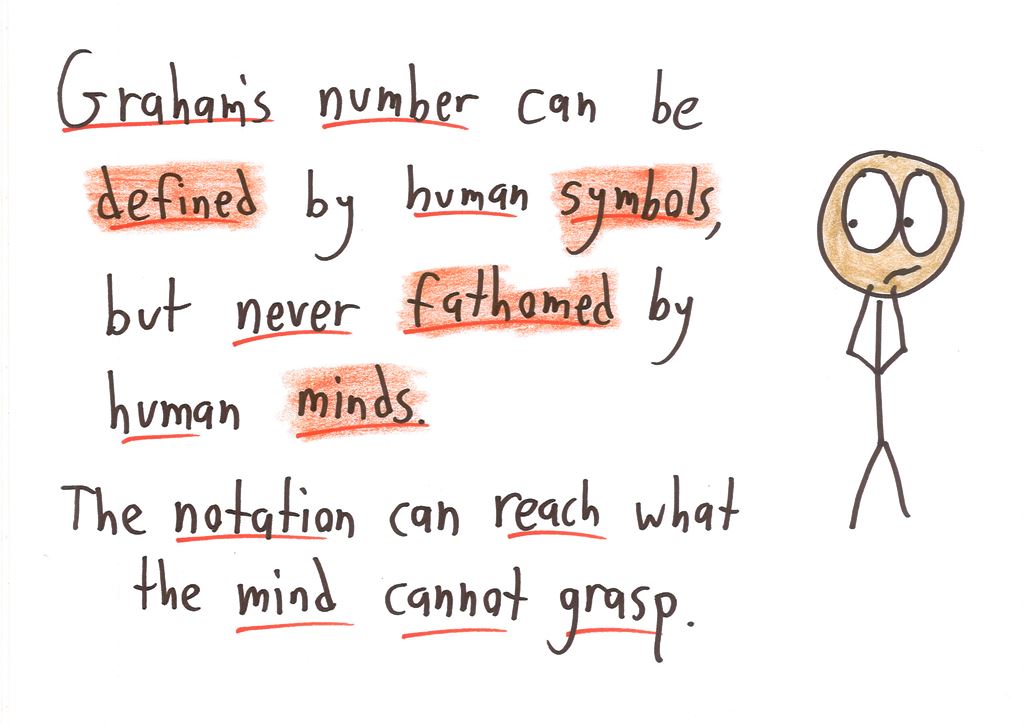 Graham's number can be
defined by human symbols,
but never fathomed by
human minds.
The notation can reach what
the mind cannot grasp.